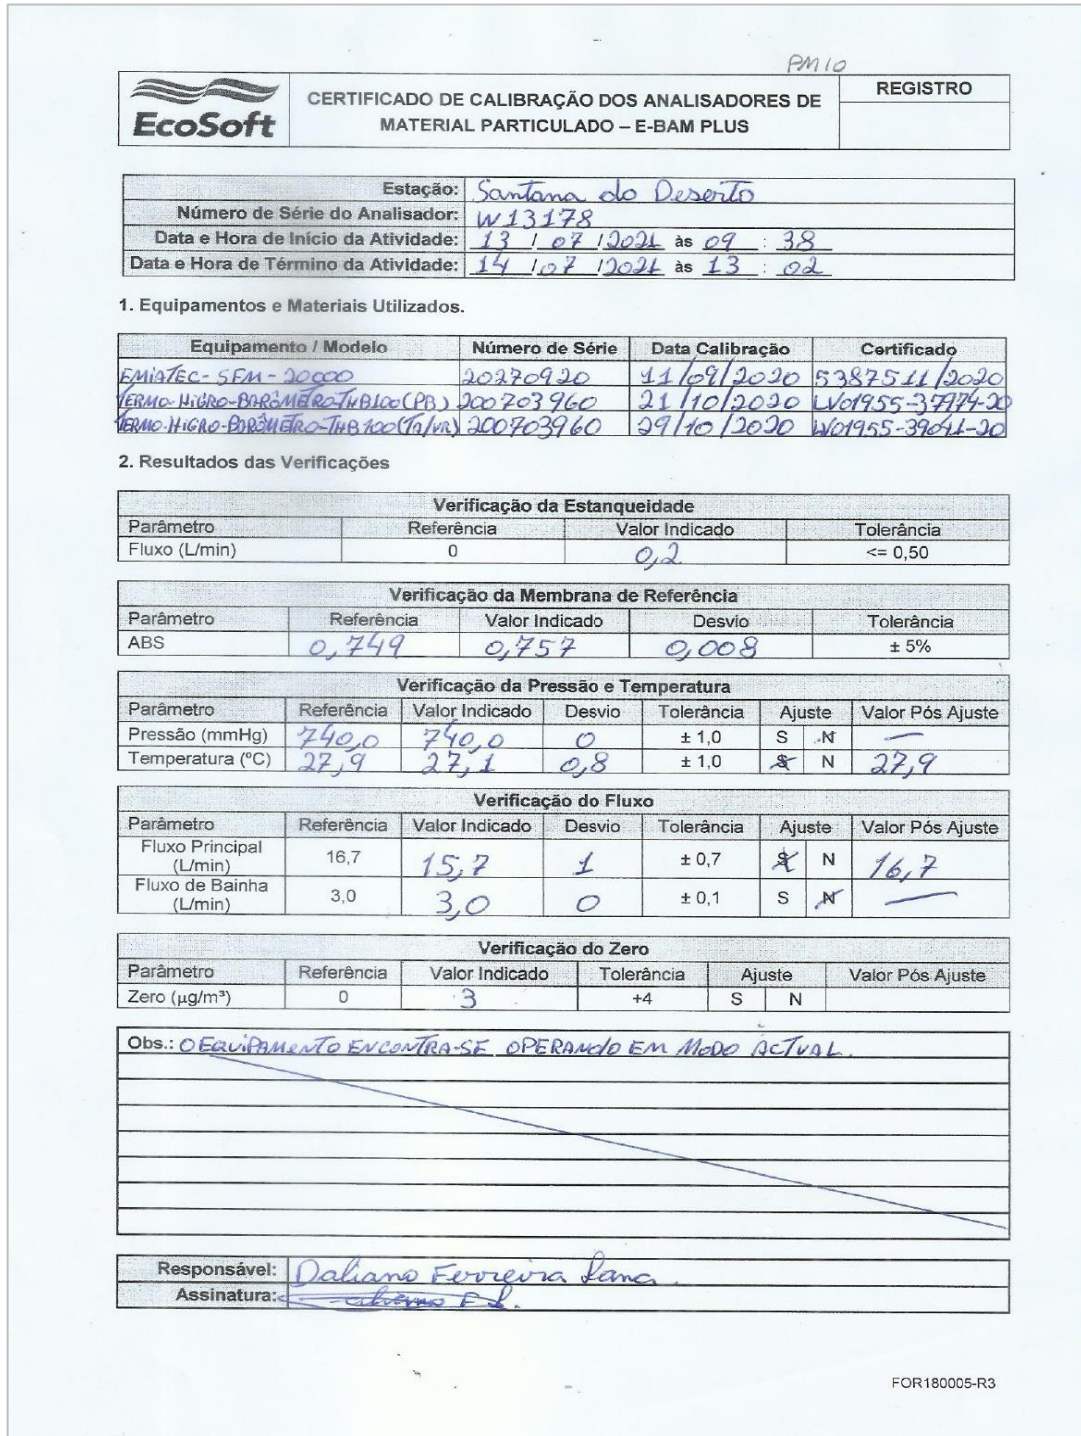 PM10
EcoSoft
CERTIFICADO DE CALIBRAÇÃO DOS ANALISADORES DE
MATERIAL PARTICULADO – E-BAM PLUS
REGISTRO
Estação: Santana do Deserto
Número de Série do Analisador: W13178
Data e Hora de Início da Atividade: 13 / 07 / 2021 às 09 : 38
Data e Hora de Término da Atividade: 14 / 07 / 2021 às 13 : 02
1. Equipamentos e Materiais Utilizados.
Equipamento / Modelo Número de Série Data Calibração Certificado
EMIATEC-SFM-20000 20270920 11/09/2020 5387511/2020
TERMO-HIGRO-BARÔMETRO-THB100(PB) 200703960 21/10/2020 LV01955-37974-20
TERMO-HIGRO-BARÔMETRO-THB100(TA/UR) 200703960 29/10/2020 LV01955-39041-20
2. Resultados das Verificações
Verificação da Estanqueidade
Parâmetro Referência Valor Indicado Tolerância
Fluxo (L/min) 0 0,2 <= 0,50
Verificação da Membrana de Referência
Parâmetro Referência Valor Indicado Desvio Tolerância
ABS 0,749 0,757 0,008 ± 5%
Verificação da Pressão e Temperatura
Parâmetro Referência Valor Indicado Desvio Tolerância Ajuste Valor Pós Ajuste
Pressão (mmHg) 740,0 740,0 0 ± 1,0 S N —
Temperatura (ºC) 27,9 27,1 0,8 ± 1,0 S N 27,9
Verificação do Fluxo
Parâmetro Referência Valor Indicado Desvio Tolerância Ajuste Valor Pós Ajuste
Fluxo Principal
(L/min) 16,7 15,7 1 ± 0,7 S N 16,7
Fluxo de Bainha
(L/min) 3,0 3,0 0 ± 0,1 S N —
Verificação do Zero
Parâmetro Referência Valor Indicado Tolerância Ajuste Valor Pós Ajuste
Zero (µg/m³) 0 3 +4 S N
Obs.: O EQUIPAMENTO ENCONTRA-SE OPERANDO EM MODO ACTUAL.
Responsável: Daliano Ferreira Lana.
Assinatura:
FOR180005-R3